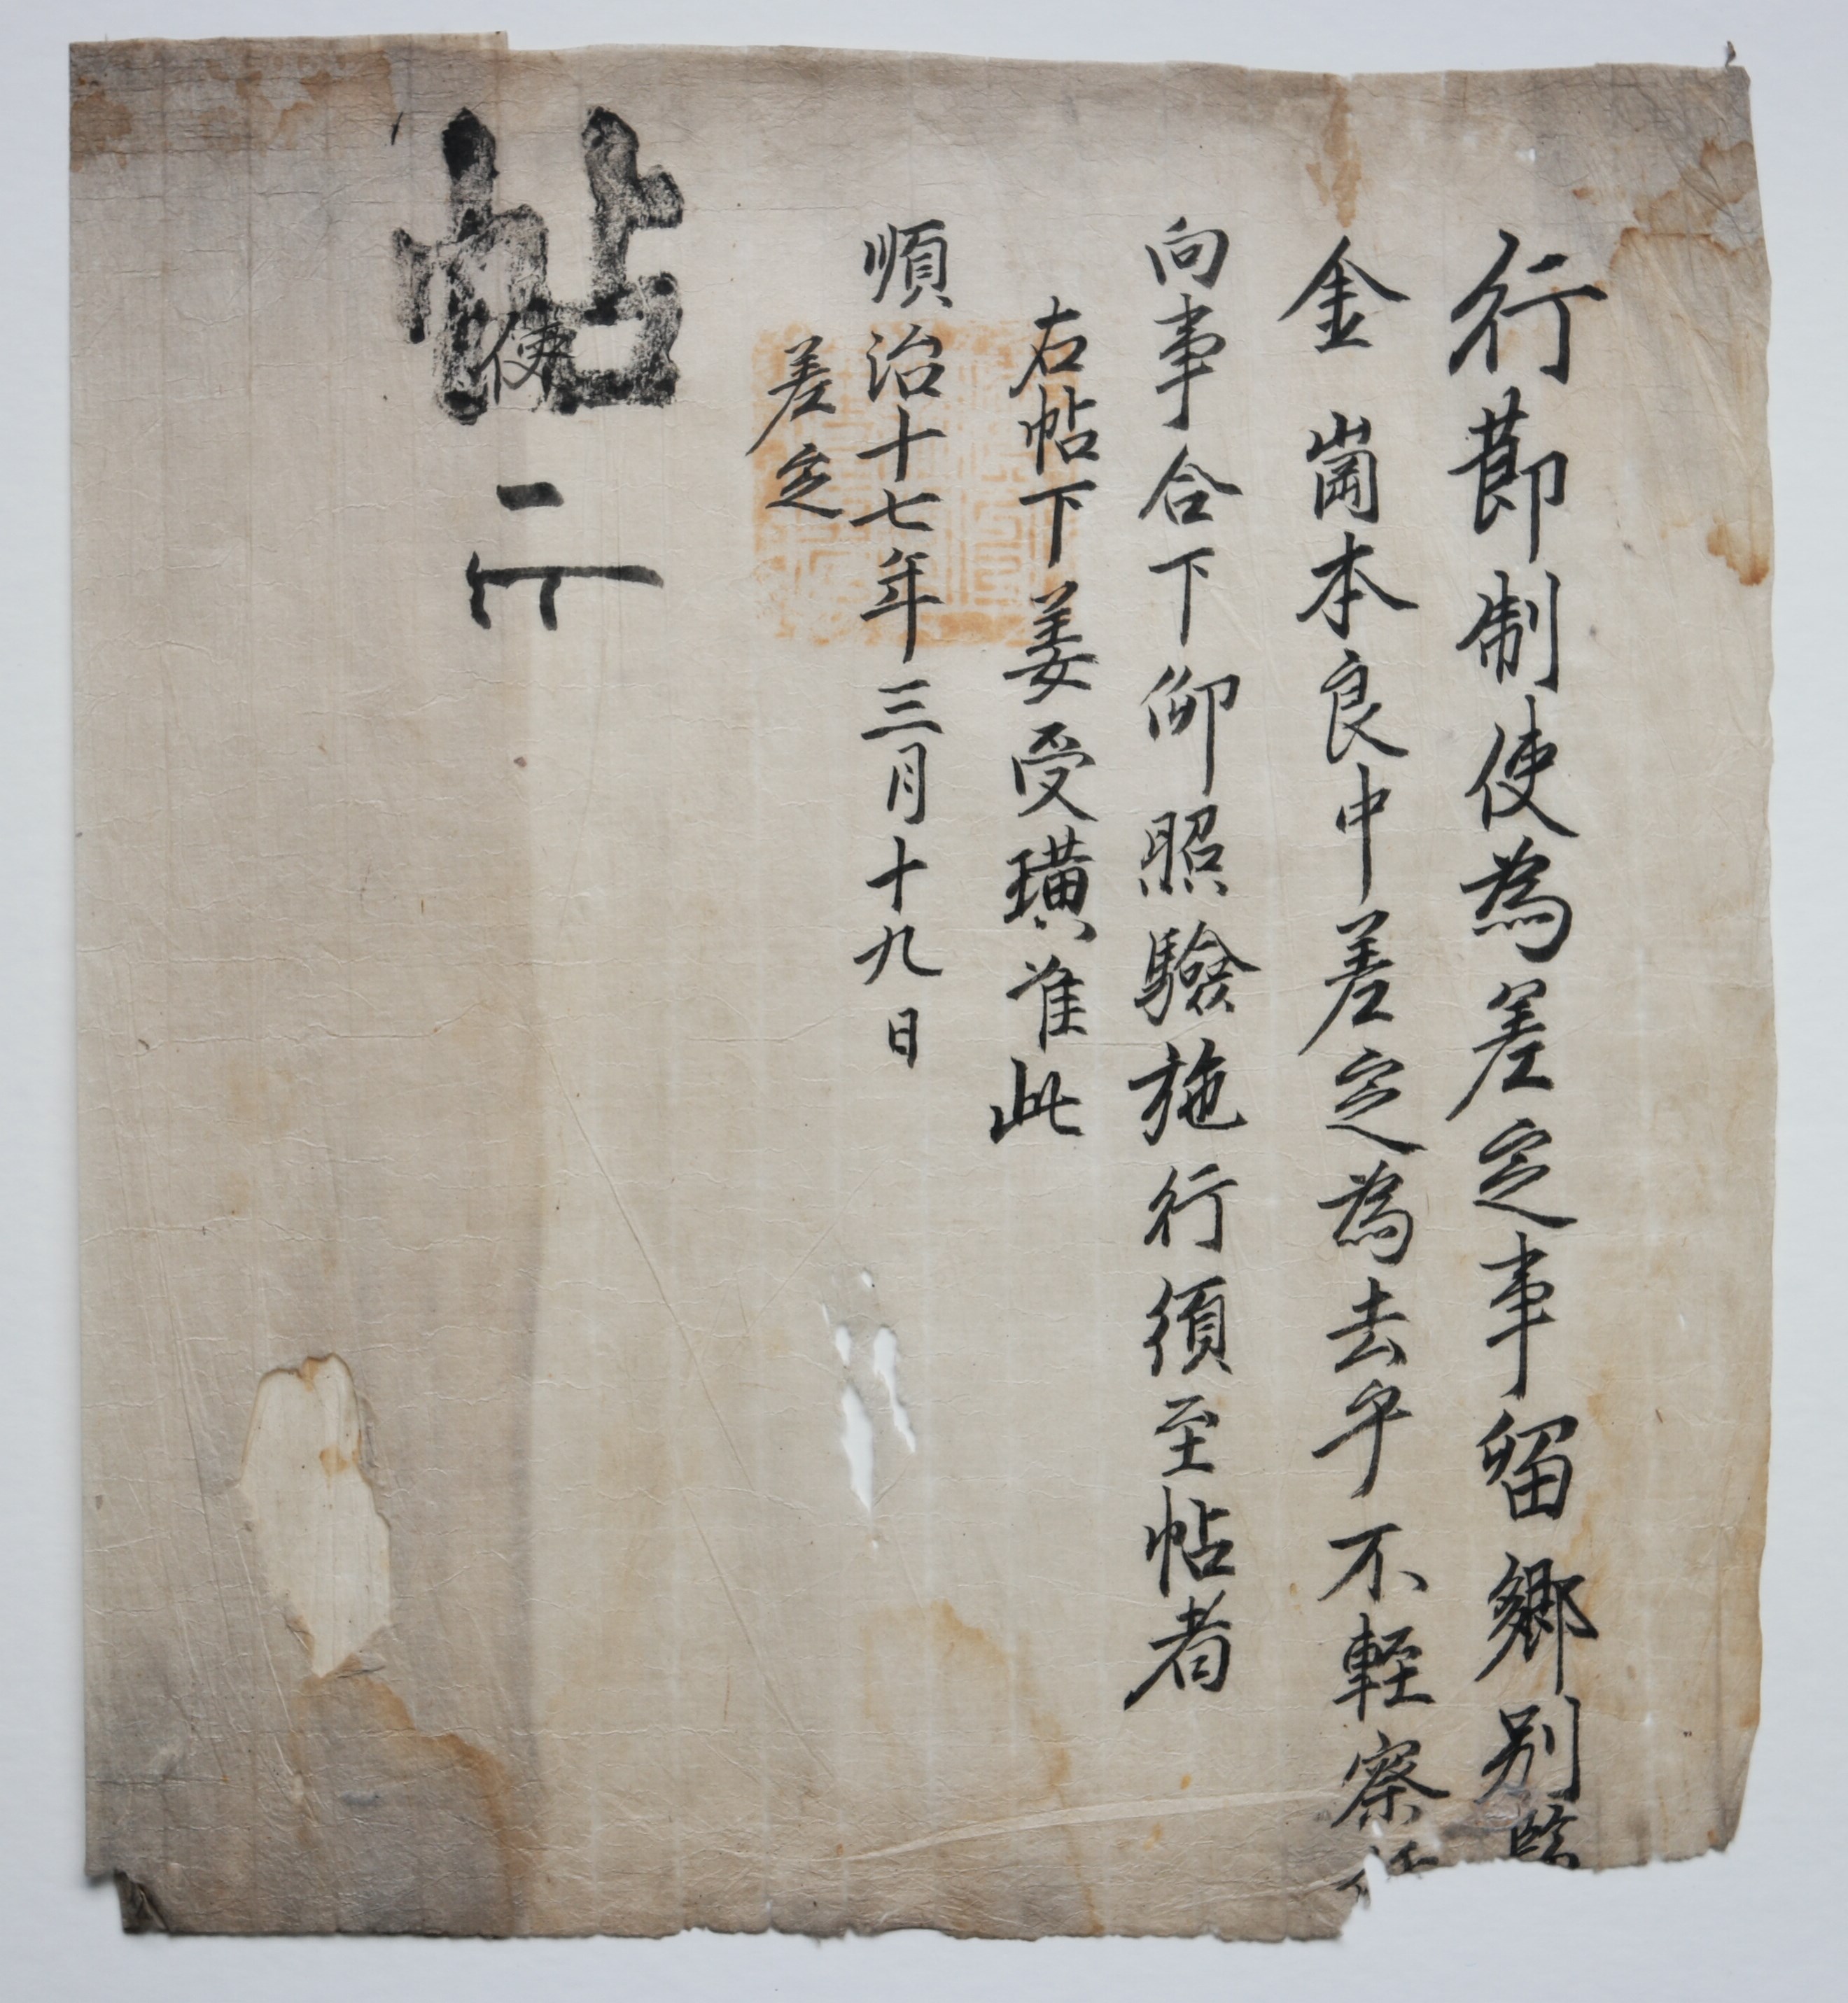 行節制使為差定事留鄉別監
金崗本良中差定為去乎不輕察任
向事合下仰照驗施行須至帖者
右帖下姜受璜准此
順治十七年三月十九日
差定
帖
使